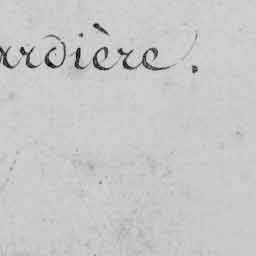 rrdière.